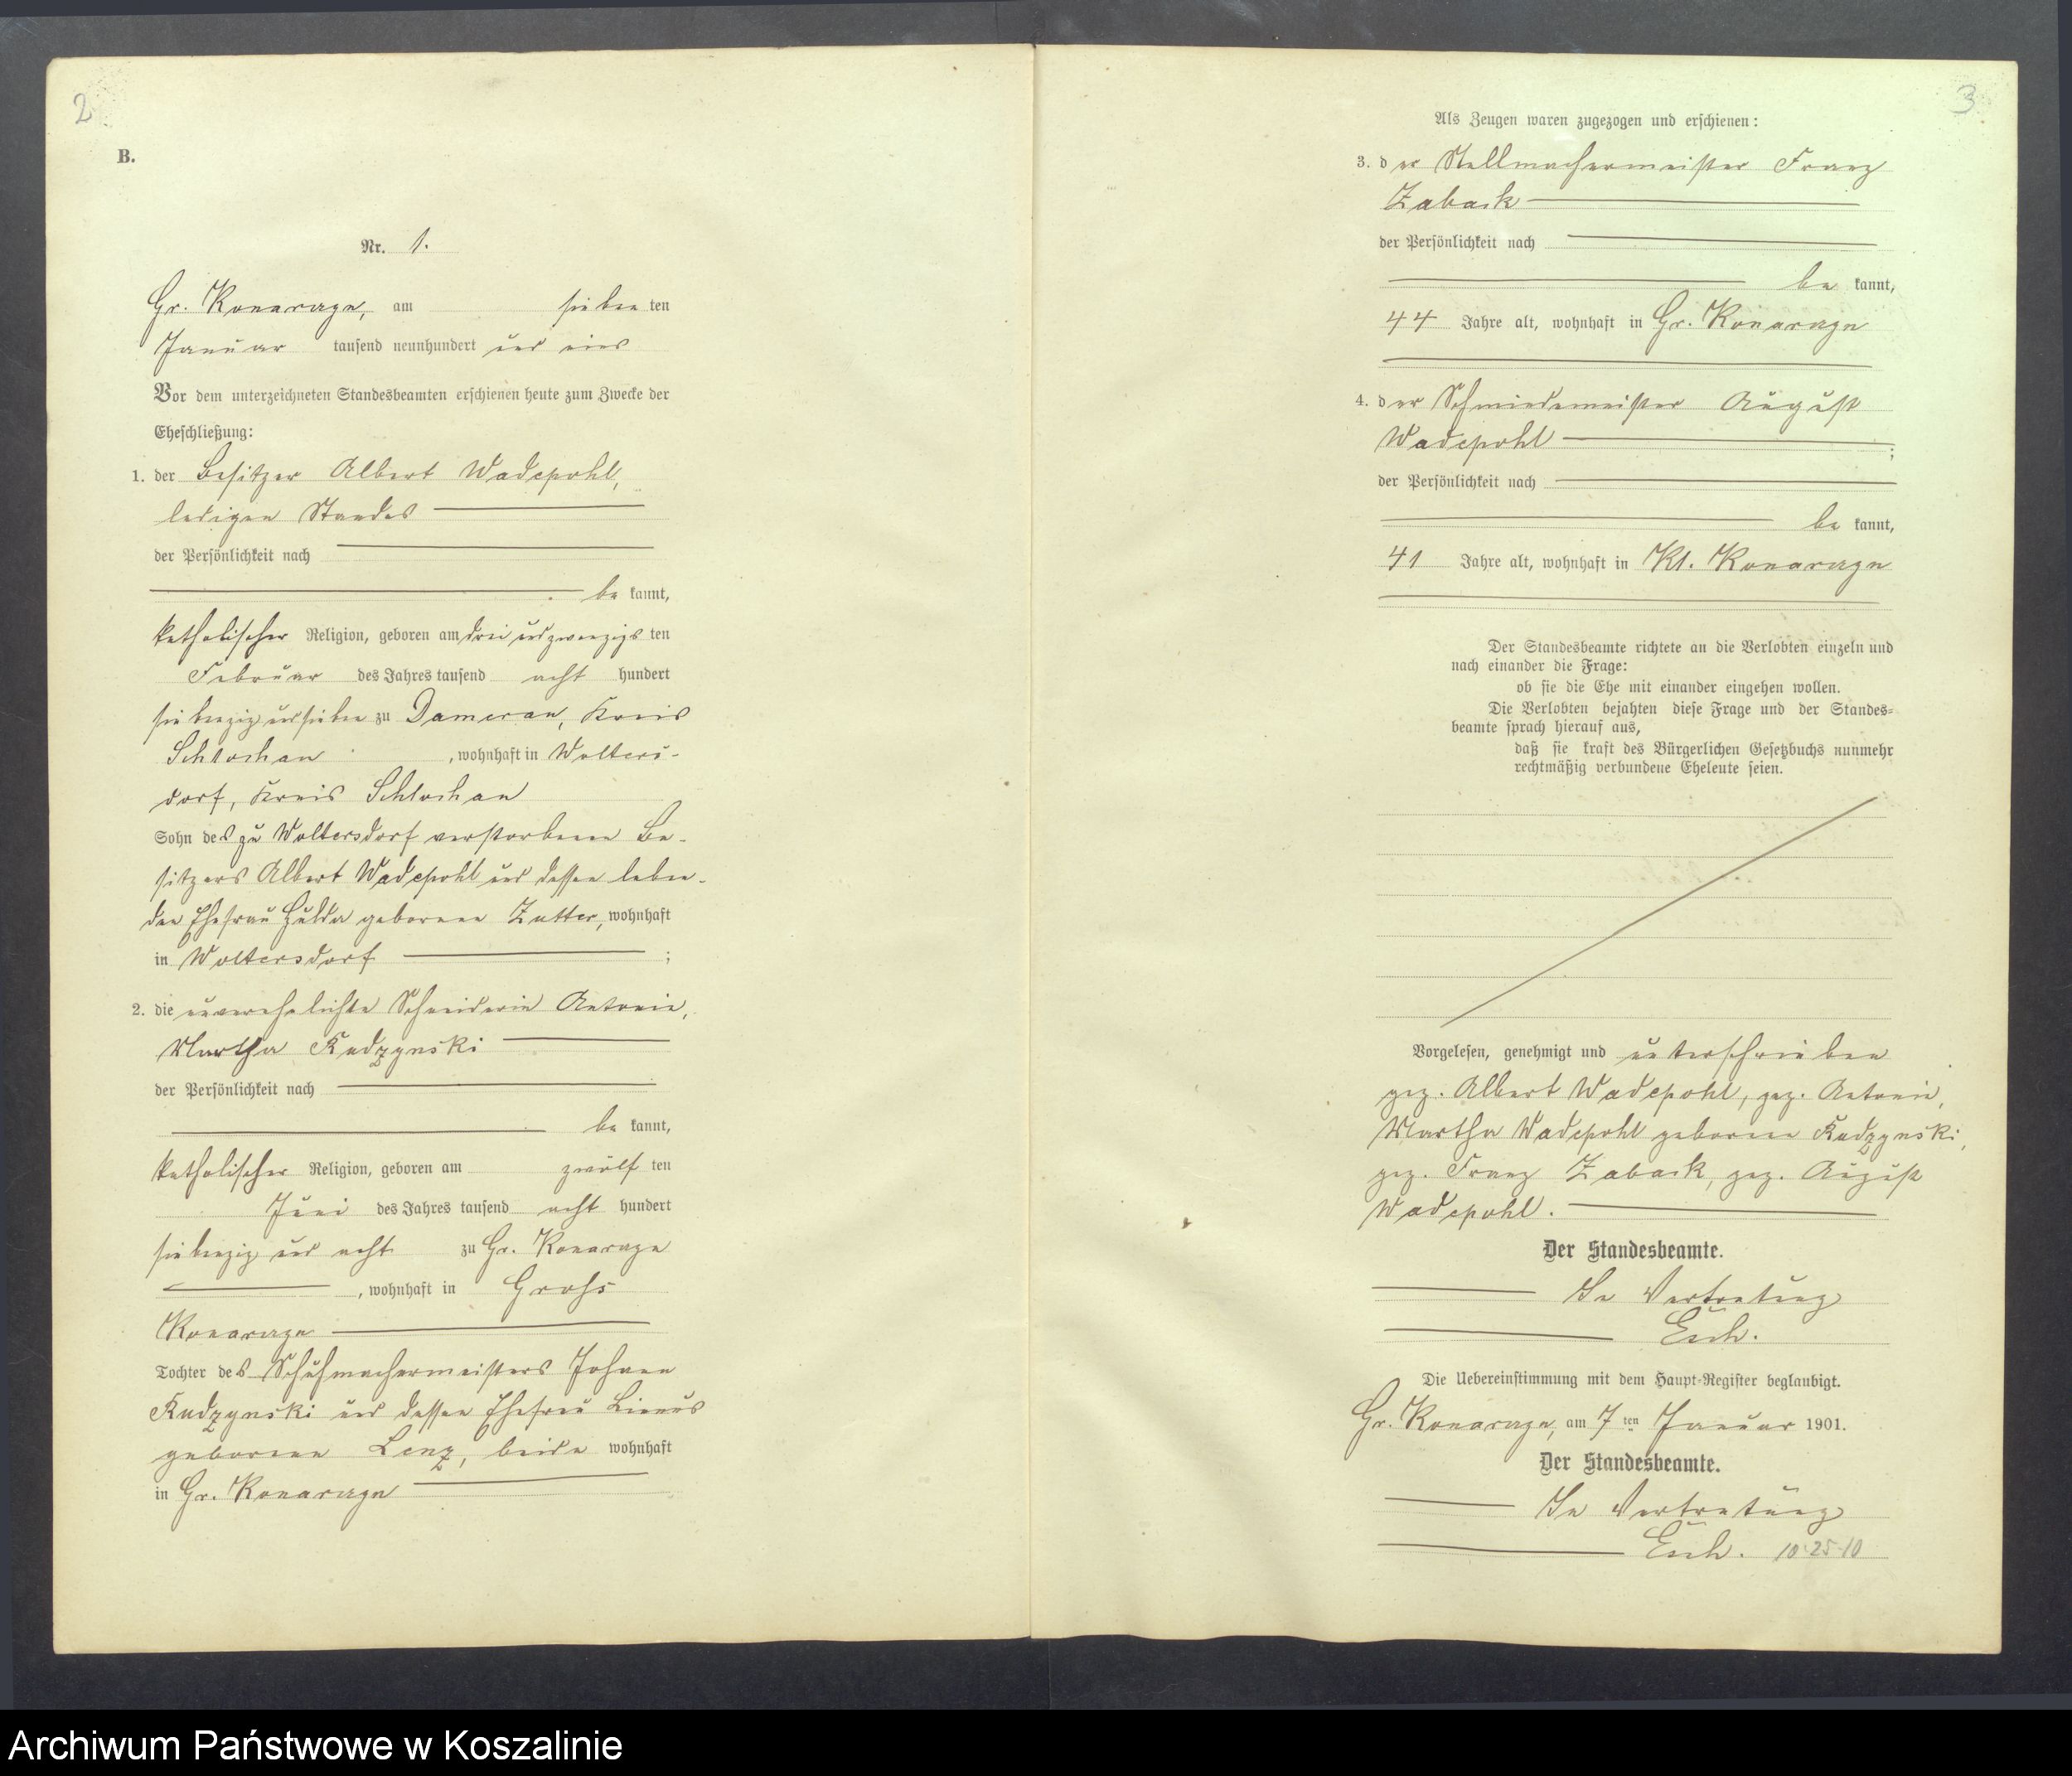 2
B.
Nr. 1.
Gr. Konarczyn, am sieben ten
Januar tausend neunhundert und eins
Vor dem unterzeichneten Standesbeamten erschienen heute zum Zwecke der
Eheschließung:
1. der Besitzer Albert Wadepohl,
ledigen Standes
der Persönlichkeit nach
be kannt,
katholischer Religion, geboren am drei und zwanzigs ten
Februar des Jahres tausend acht hundert
siebenzig und sieben zu Damerau, Kreis
Schlochau, wohnhaft in Wolters-
dorf, Kreis Schlochau
Sohn des zu Woltersdorf verstorbenen Be-
sitzers Albert Wadepohl und dessen leben-
den Ehefrau Hulda geborenen Zutter, wohnhaft
in Woltersdorf ;
2. die unverehelichte Schneiderin Antonie,
Martha Kudzynski
der Persönlichkeit nach
be kannt,
katholischer Religion, geboren am zwölf ten
Juni des Jahres tausend acht hundert
siebenzig und acht zu Gr. Konarczyn
, wohnhaft in Gross
Konarczyn
Tochter des Schuhmachermeisters Johann
Kudzynski und dessen Ehefrau
geborenen Lenz, beide wohnhaft
in Gr. Konarczyn
3
Als Zeugen waren zugezogen und erschienen:
3. der Stellmachermeister Franz
Zaback
der Persönlichkeit nach
be kannt,
44 Jahre alt, wohnhaft in Gr. Konarczyn
4. der Schmiedemeister August
Wadepohl ;
der Persönlichkeit nach
be kannt,
41 Jahre alt, wohnhaft in Kl. Konarczyn
Der Standesbeamte richtete an die Verlobten einzeln und
nach einander die Frage:
ob sie die Ehe mit einander eingehen wollen.
Die Verlobten bejahten diese Frage und der Standes-
beamte sprach hierauf aus,
daß sie kraft des Bürgerlichen Gesetzbuchs nunmehr
rechtmäßig verbundene Eheleute seien.
Vorgelesen, genehmigt und unterschrieben
gez. Albert Wadepohl, gez. Antonie,
Martha Wadepohl geborene Kudzynski,
gez. Franz Zaback, gez. August
Wadepohl.
Der Standesbeamte.
In Vertretung
Der Uebereinstimmung mit dem Haupt-Register beglaubigt.
Gr. Konarczyn, am 7ten Januar 1901.
Der Standesbeamte.
In Vertretung
10·25·10
Archiwum Państwowe w Koszalinie